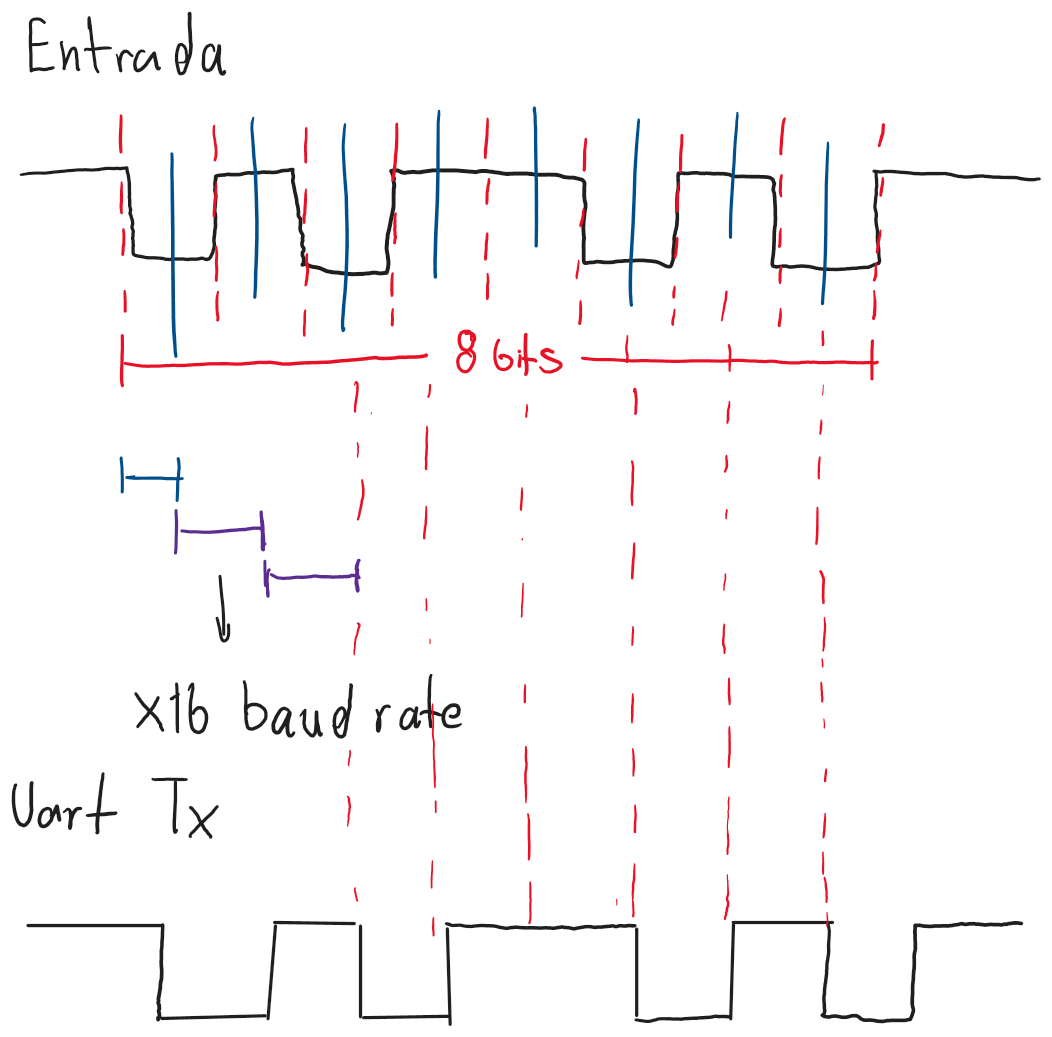 Entrada
8 bits
x16 baud rate
Uart Tx